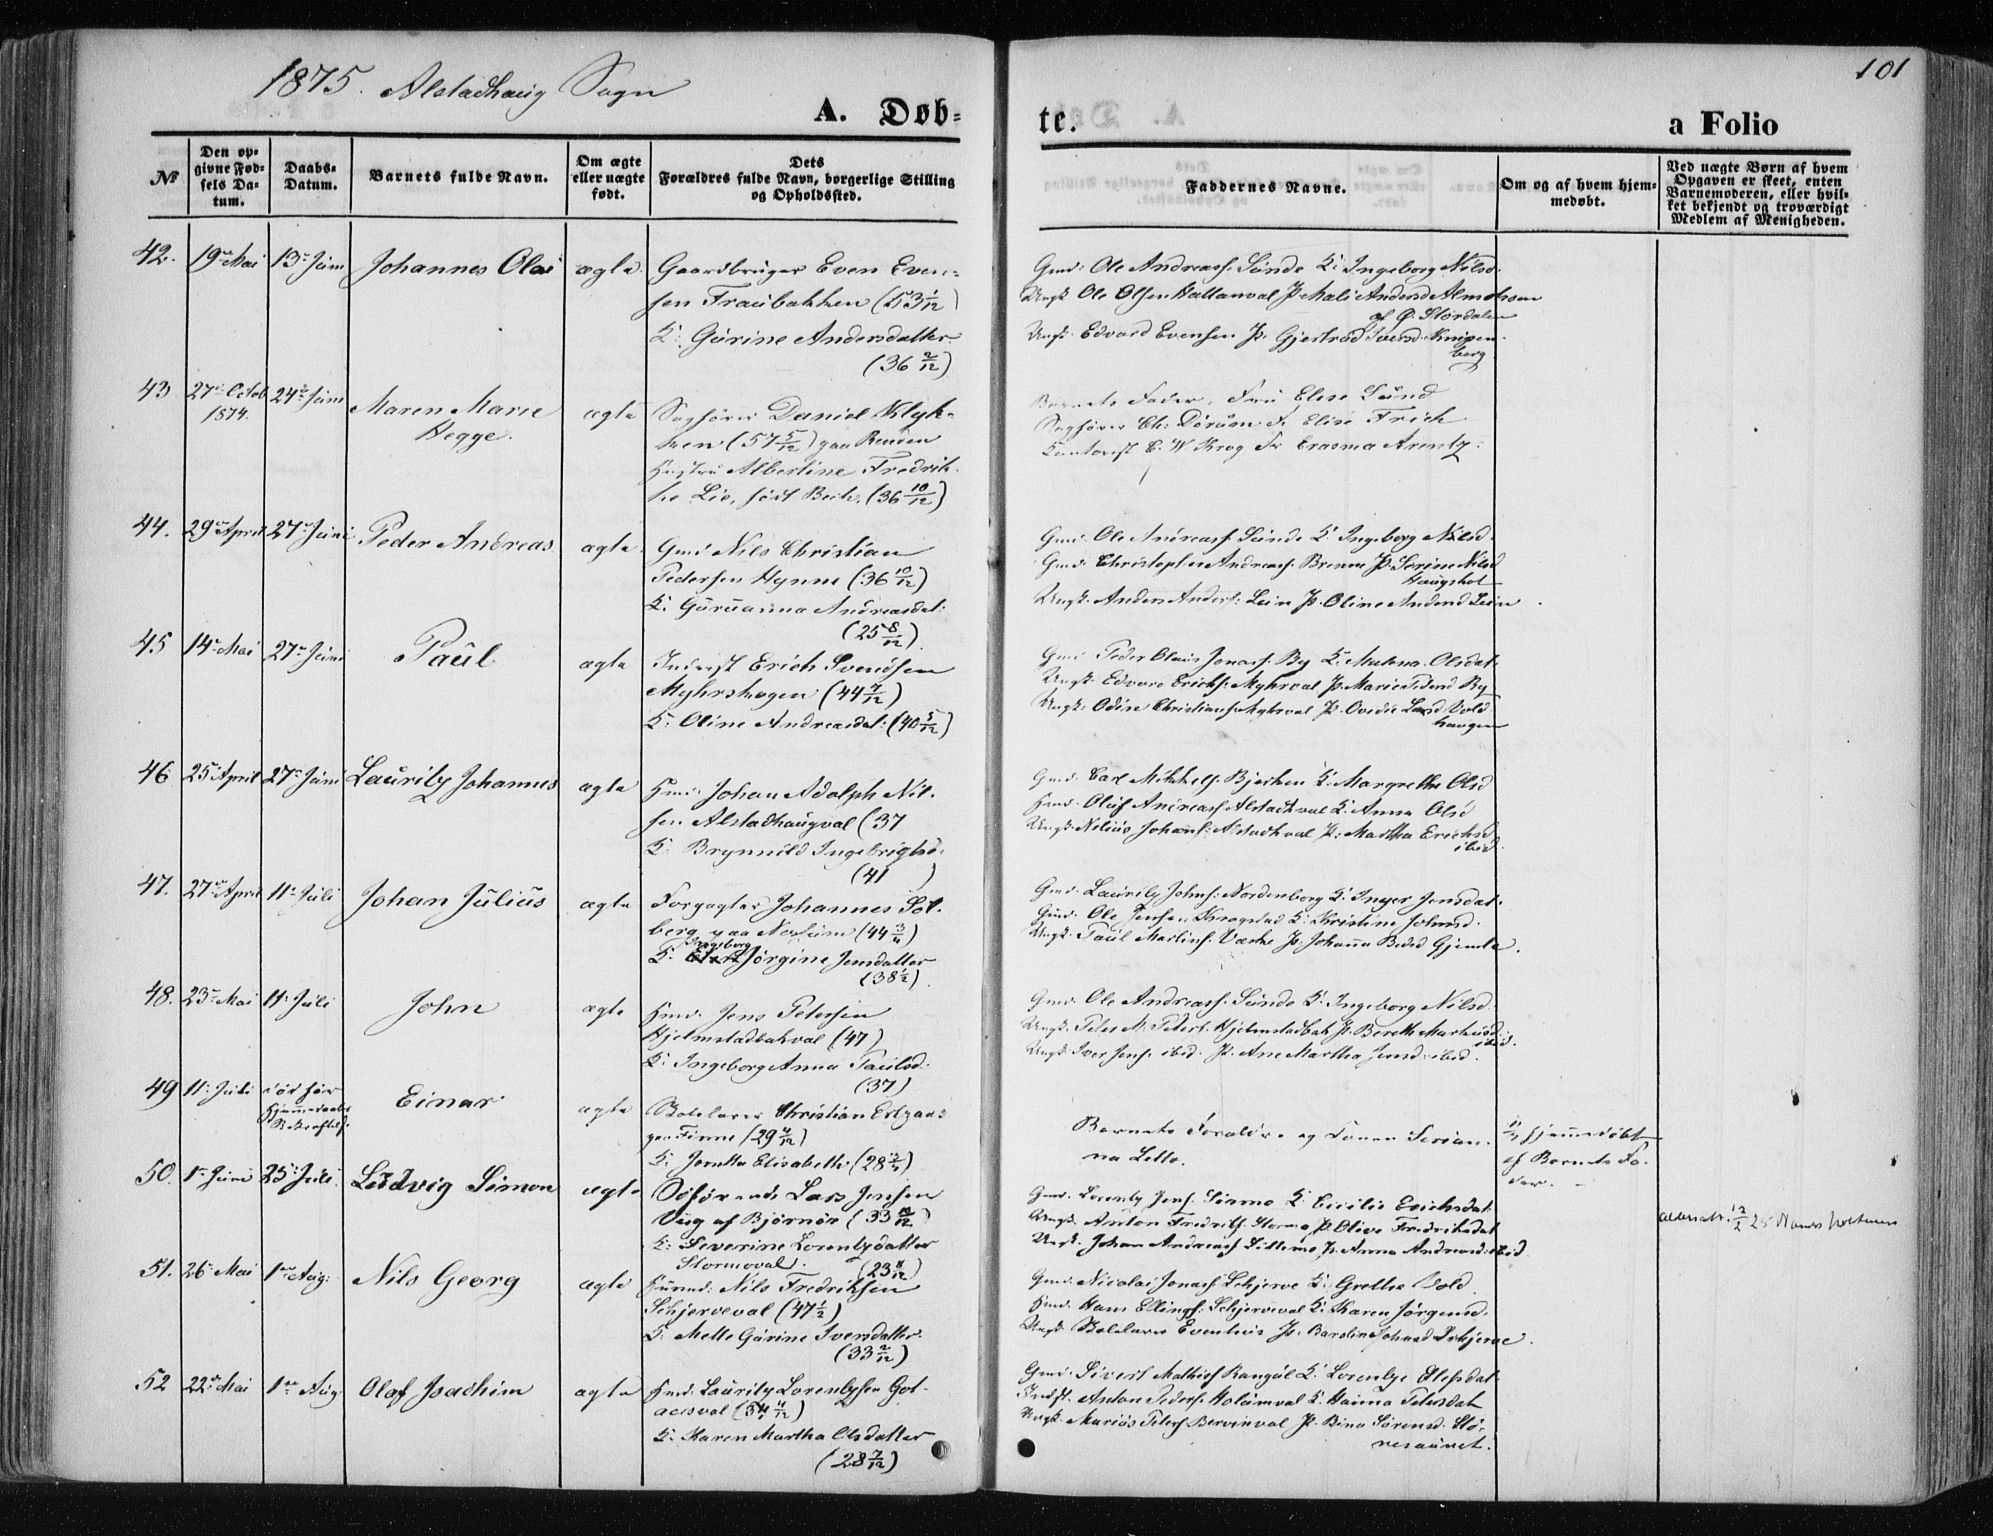 1875. Alstadhaug Sogn
101
A. Døb=
te.
a Folio
№
Den op-
givne Fød-
sels Da-
tum.
Daabs-
Datum.
Barnets fulde Navn.
Om ægte
eller uægte
født.
Dets
Forældres fulde Navn, borgerlige Stilling
og Opholdssted.
Faddernes Navne.
Om og af hvem hjem-
medøbt.
Ved uægte Børn af hvem
Opgaven er skeet, enten
Barnemoderen, eller hvil-
ket bekjendt og troværdigt
Medlem af Menigheden.
42. 19de Mai 13de Juni Johannes Olai ægte Gaardbruger Even Even-
sen Traubakken (53 1/12)
K: Gurine Andersdatter
(36 2/12)
Gmd: Ole Andreass: Sunde K: Ingeborg Nilsd.
Ungk. Ole Olsen Hallanval P. Mali Andersd Almohaen
af Ø. Størdalen
Ungk. Edvard Evensen P. Gjertrud Iversd. Knipen-
berg
43 27de Octob 1874. 24de Juni Maren Marie
Hegge. ægte Sagfører Daniel Klyk-
ken (57 5/12) paa
Hustru Albertine Fredrik-
ke Lie, født Bech. (36 10/12)
Barnets Fader, Fru Elise Lund
Sagfører Ch: Dørum Fr. Elise Frich
Kontorist E. W. Krog Fr Erasma Arentz.
44. 29de April 27de Juni Peder Andreas ægte Gmd Nils Christian
Pedersen Hynne (36 10/12)
K: Guruanna Andreasdat:
(25 8/12)
Gmd. Ole Andreass. Sunde K. Ingeborg Nilsd.
Gmd. Christopher Andreass. Brenne P. Serine Nilsd
Haugshot
Ungk. Anders Anders: Lein P. Oline Andersd Lein
45 14de Mai 27de Juni Paul ægte Inderst Erich Svendsen
Myhrshagen (44 7/12)
K: Oline Andreasdat: (40 5/12)
Gmd Peder Olaus Jonass. By K. Malena Olsdat.
Ungk. Edvard Erichs. Myhrval P. Marie Pedersd By
Ungk. Odin Christians. Myhrval P. Ovedie Larsd. Vold
haugen
46 25de April 27de Juni Lauritz Johannes ægte Hmd. Johan Adolph Nil-
sen Alstadhaugval (37
K. Brynnild Ingebrigtsd.
(41 )
Gmd. Carl Mikkels. Bjerken K. Margrethe Olsd
Hmd. Oluf Andreass. Alstadhval K. Anna Olsd
Ungk. Nelius Johans: Alstadhval P: Martha Erichsd
ibid.
47. 27de April 11te Juli Johan Julius ægte Forpagter Johannes Sol-
berg paa (44 3/4)
K. Ingeborg Jørgine Jensdatter
(38 1/2).
Gmd. Lauritz Johns: Nordenborg K. Inger Jensdat.
Gmd. Ole Jensen Krogstad K: Kristine Johnsd.
Ungk. Paul Martins. Væske P. Johanna Gjemle.
48. 23de Mai 11te Juli John ægte Hmd. Jens Petersen
Hjelmstadbakval (47)
K: Ingeborg Anna Paulsd.
(37)
Gmd. Ole Andreass. Sunde K: Ingeborg Nilsd.
Ungk. Peter M. Peters: Hjelmstadbak P. Bereth Markusd
ibid.
Ungk. Iver Jens. ibid. P. Ane Martha Jensd. ibid.
49 11te Juli død før
Hjemmedaabs
Bekræftelse Einar ægte Boelærer Christian
(29 4/12)
K: Elisabeth (28 )
Barnets Forældre og
na Lello.
11/7 hjemmedøbt
af Barnets Fa-
der.
50. 1ste Juni 25de Juli. Ludvig Simon ægte Søfarende Lars Jensen
Vug af Bjørnør (33 10/12)
K: Severine Lorentzdatter
Stormoval. (23 8/12)
Gmd. Lorentz Jens. Stormo K. Cecilie Erichsdat.
Ungk. Anton Fredriks. Stormo P. Olive Fredriksdat
Ungk. Johan Andreass P. Anna Andreasd. ibid.
51. 26de Mai 1ste Aug: Nils Georg ægte Husmd: Nils Fredriksen
Schjerveval (47 1/2)
K. Mette Gurine Iversdatter.
(33 2/12)
Gmd. Nicolai Jonass. Schjerve K: Grethe Vold.
Hmd. Hans Ellings: Schjerveval K: Karen Jørgensd.
Ungk. Skolelærer P. Schjerve.
52 22de Mai 1ste Aug. Olaf Joachim ægte Hmd: Lauritz Lorentzsen Gol-
aasval (34 4/12)
K: Karen Martha Olsdatter
(28 7/12)
Gmd. Sivert Mathias. K. Lorentze
Indst. Anton Peders. Holumval K. Hanna Petersdat
Ungk. Marius Peters P. Bina Sørensd. Stø-
resaunet.